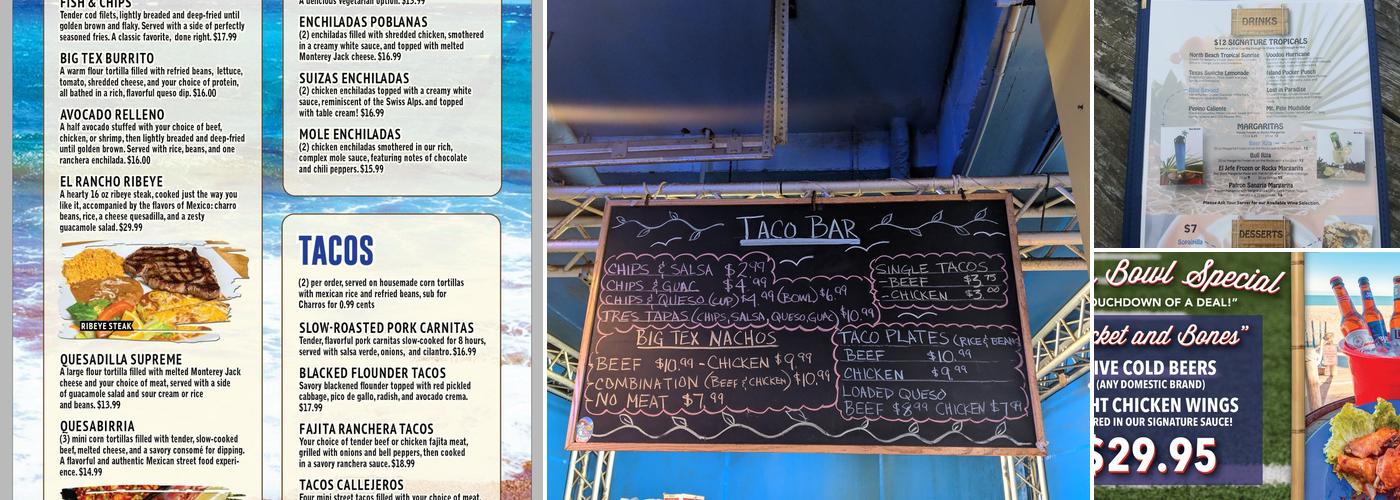 FISH & CHIPS
Tender cod filets, lightly breaded and deep-fried until
golden brown and flaky. Served with a side of perfectly
seasoned fries. A classic favorite, done right. $17.99
BIG TEX BURRITO
A warm flour tortilla filled with refried beans, lettuce,
tomato, shredded cheese, and your choice of protein,
all bathed in a rich, flavorful queso dip. $16.00
AVOCADO RELLENO
A half avocado stuffed with your choice of beef,
chicken, or shrimp, then lightly breaded and deep-fried
until golden brown. Served with rice, beans, and one
ranchera enchilada. $16.00
EL RANCHO RIBEYE
A hearty 16 oz ribeye steak, cooked just the way you
like it, accompanied by the flavors of Mexico: charro
beans, rice, a cheese quesadilla, and a zesty
guacamole salad. $29.99
RIBEYE STEAK
QUESADILLA SUPREME
A large flour tortilla filled with melted Monterey Jack
cheese and your choice of meat, served with a side
of guacamole salad and sour cream or rice
and beans. $13.99
QUESABIRRIA
(3) mini corn tortillas filled with tender, slow-cooked
beef, melted cheese, and a savory consomé for dipping.
A flavorful and authentic Mexican street food experi-
ence. $14.99
A delicious vegetarian option. $15.99
ENCHILADAS POBLANAS
(2) enchiladas filled with shredded chicken, smothered
in a creamy white sauce, and topped with melted
Monterey Jack cheese. $16.99
SUIZAS ENCHILADAS
(2) chicken enchiladas topped with a creamy white
sauce, reminiscent of the Swiss Alps. and topped
with table cream! $16.99
MOLE ENCHILADAS
(2) chicken enchiladas smothered in our rich,
complex mole sauce, featuring notes of chocolate
and chili peppers. $15.99
TACOS
(2) per order, served on housemade corn tortillas
with mexican rice and refried beans, sub for
Charros for 0.99 cents
SLOW-ROASTED PORK CARNITAS
Tender, flavorful pork carnitas slow-cooked for 8 hours,
served with salsa verde, onions, and cilantro. $16.99
BLACKED FLOUNDER TACOS
Savory blackened flounder topped with red pickled
cabbage, pico de gallo, radish, and avocado crema.
$17.99
FAJITA RANCHERA TACOS
Your choice of tender beef or chicken fajita meat,
grilled with onions and bell peppers, then cooked
in a savory ranchera sauce. $18.99
TACOS CALLEJEROS
Four mini street tacos filled with your choice of meat,
TACO BAR
CHIPS & SALSA $2.99
CHIPS & GUAC $4.99
CHIPS & QUESO (CUP) $4.99 (BOWL) $6.99
TRES TAPAS (CHIPS, SALSA, QUESO, GUAC) $10.99
BIG TEX NACHOS
BEEF $10.99 - CHICKEN $9.99
COMBINATION (BEEF & CHICKEN) $10.99
NO MEAT $7.99
SINGLE TACOS
-BEEF $3.75
-CHICKEN $3.00
TACO PLATES (RICE & BEANS
BEEF $10.99
CHICKEN $9.99
LOADED QUESO
BEEF $8.99 CHICKEN $7.99
DRINKS
$12 SIGNATURE TROPICALS
North Beach Tropical Sunrise
Voodoo Hurricane
Texas Swische Lemonade
Island Pucker Punch
Blue Beyond
Lost in Paradise
Pepino Caliente
Mt. Pele Mudslide
MARGARITAS
Beer Rita
Bull Rita
El Jefe Frozen or Rocks Margarita
Patron Sanaria Margarita
Please Ask Your Server for our Available Wine Selection.
DESSERTS
$7
Sopapilla
Bowl Special
OUCHDOWN OF A DEAL!"
cket and Bones"
IVE COLD BEERS
(ANY DOMESTIC BRAND)
HT CHICKEN WINGS
RED IN OUR SIGNATURE SAUCE!
$29.95